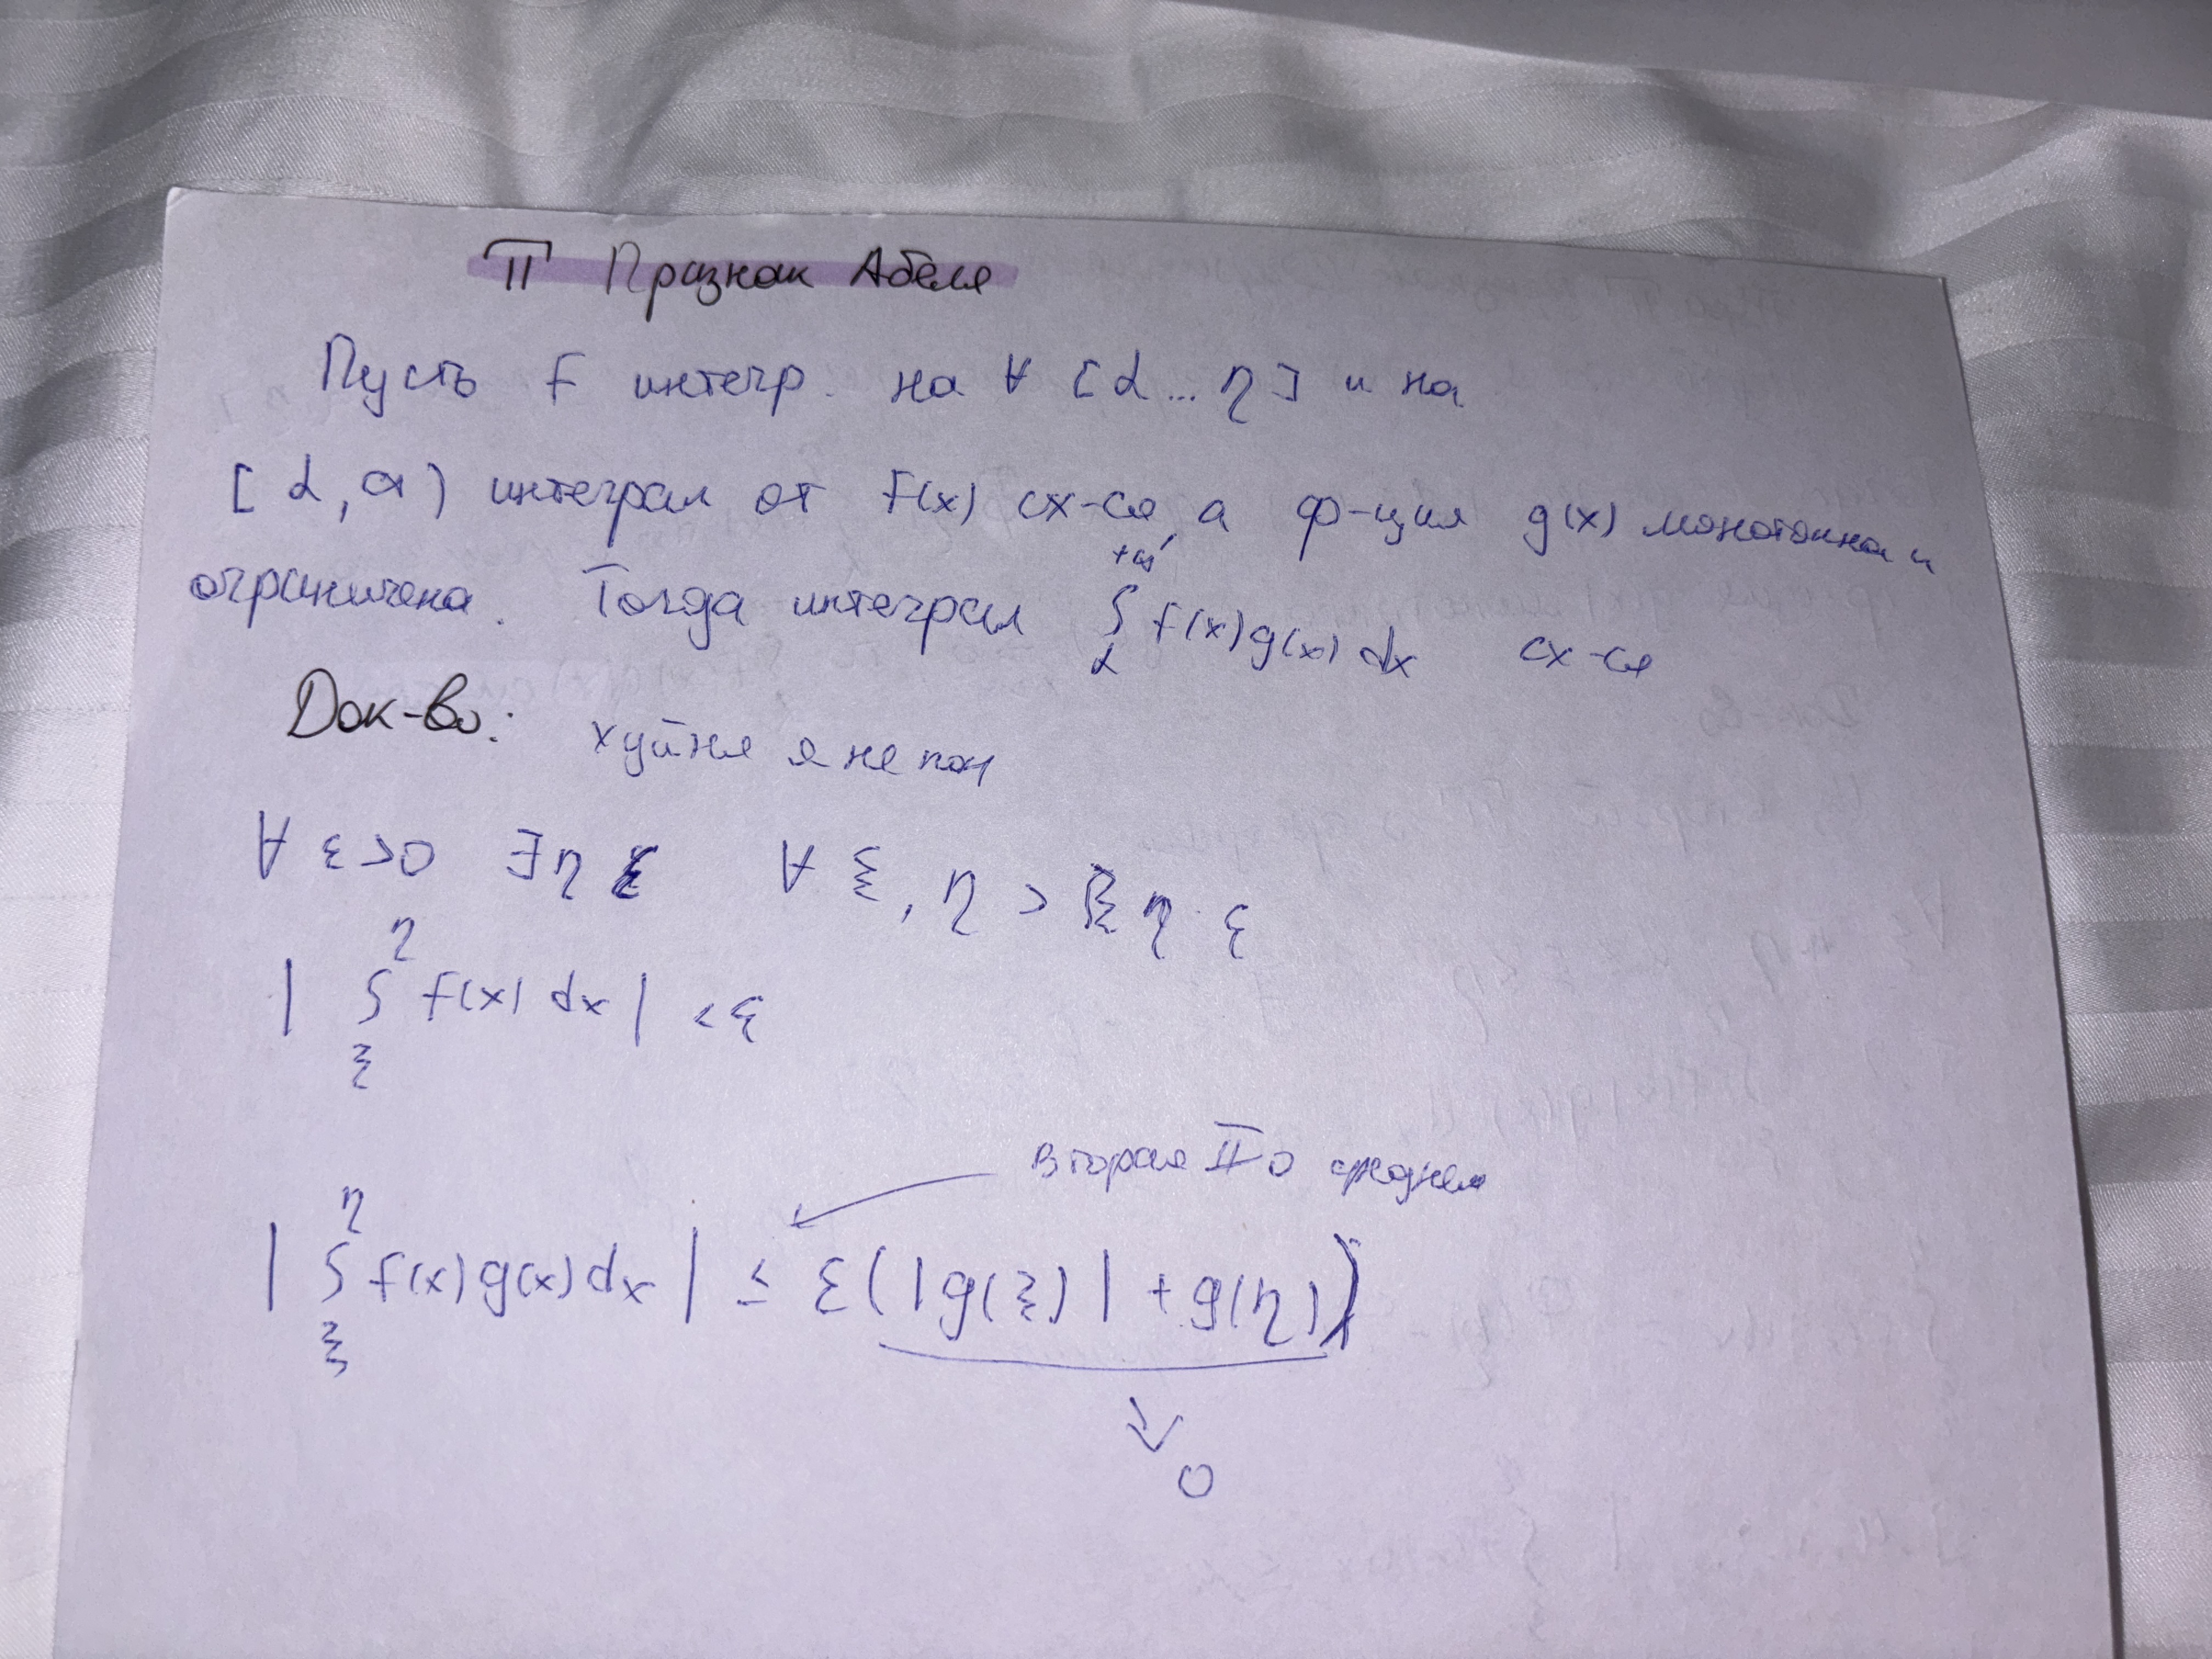 П Признак Абеля
Пусть f интегр. на ∀ [α... η] и на
[α, a) интеграл от f(x) сх-ся, а ф-ция g(x) монотонна и
ограничена. Тогда интеграл ∫ f(x)g(x)dx сх-ся
Док-во: хуйня я не пон
∀ ε>0 ∃η ∀ ξ, η > η ε
| ∫_ξ^η f(x)dx | < ε
вторая П о среднем
| ∫_ξ^η f(x)g(x)dx | ≤ ε(|g(ξ)| + g(η))
0